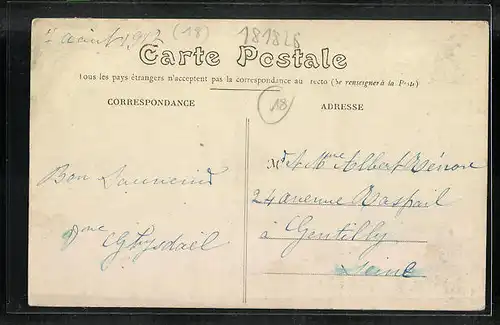 août 1912 (18) 181828
Carte Postale
Tous les pays étrangers n'acceptent pas la correspondance au recto (Se renseigner à la Poste)
CORRESPONDANCE
18
ADRESSE
M et Mme Albert Vénon
Bon Souvenir
24 avenue Raspail
à Gentilly
Seine
Mme Ghysdaël